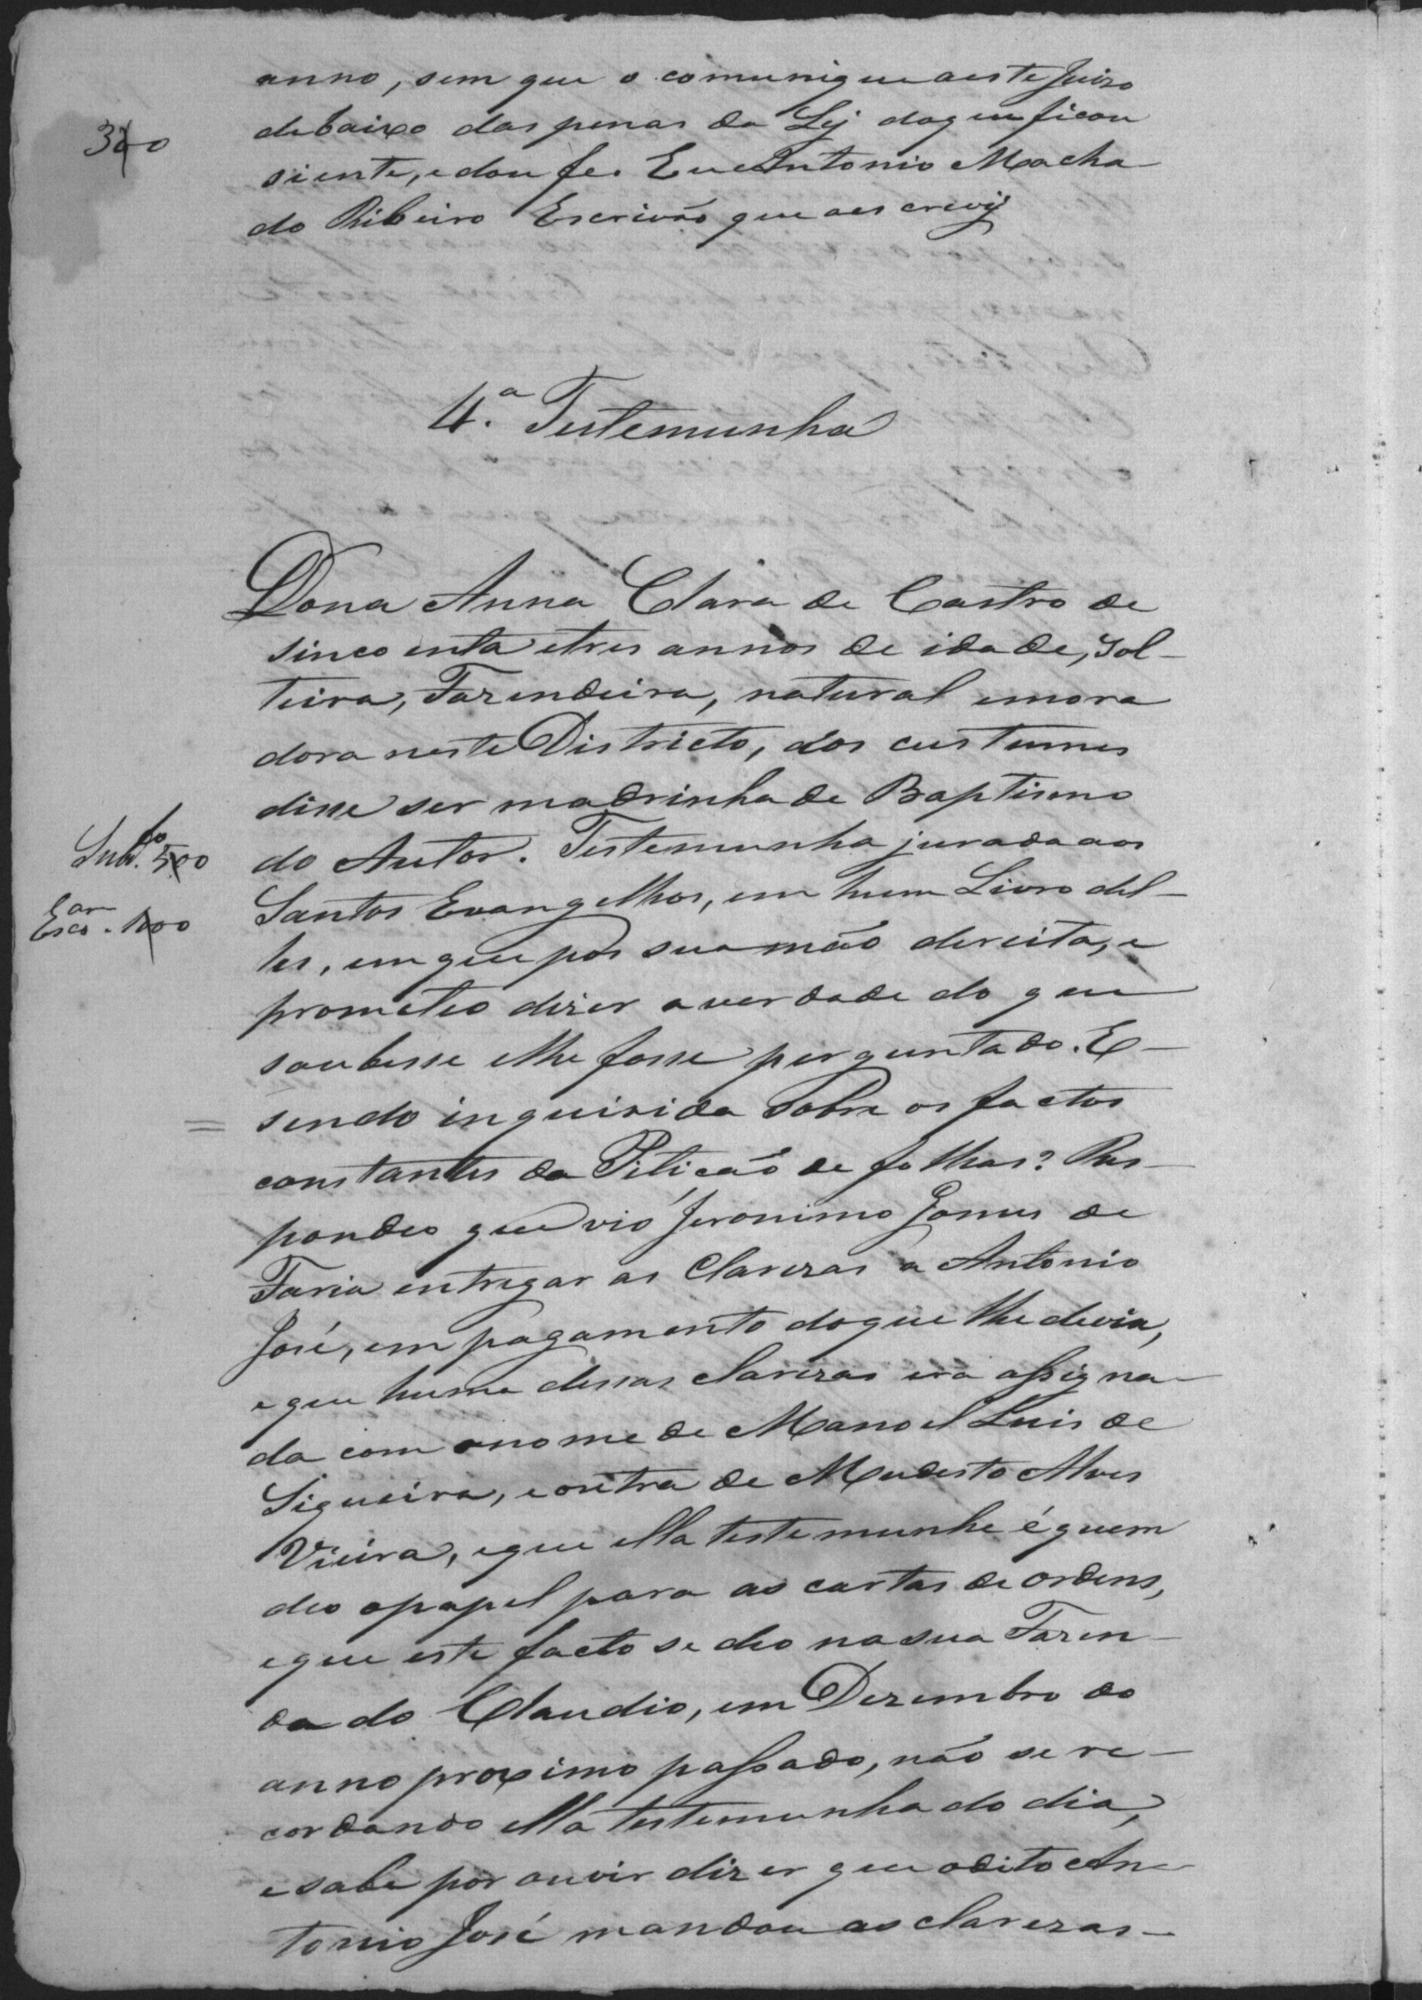 anno, sem que o comunique aeste Juizo
320
debaixo das penas da Lej do que ficou
siente, e dou fe. Eu Antonio Macha
do Ribeiro Escrivão que a es crevij
4.ª Testemunha
Dona Anna Clara de Castro de
sincoenta e tres annos de idade, sol-
teira, Fazendeira, natural e mora
dora neste Districto, dos custumes
disse ser madrinha de Baptismo
do Autor. Testemunha jurada aos
500
Santos Evangelhos, em hum Livro del-
1000
les, em que pos sua mão direita, e
prometeo dizer a verdade do que
soubesse e lhe fosse perguntado. E-
= sendo inquirida sobre os factos
constantes da Petição de folhas? Res-
pondeo que vio Jeronimo Gomes de
Faria entregar as Clarezas a Antonio
José, em pagamento do que lhe devia,
e que huma dessas clarezas era assigna-
da com o nome de Manoel Luis de
Siqueira, e outra de Modesto Alves
Vieira, e que ella testemunha é quem
deo o papel para as cartas de ordens,
e que este facto se deo na sua Fazen-
da do Claudio, em Dezembro do
anno proximo passado, não se re-
cordando ella testemunha do dia,
e sabe por ouvir dizer que o dito An-
tonio José mandou as clarezas-